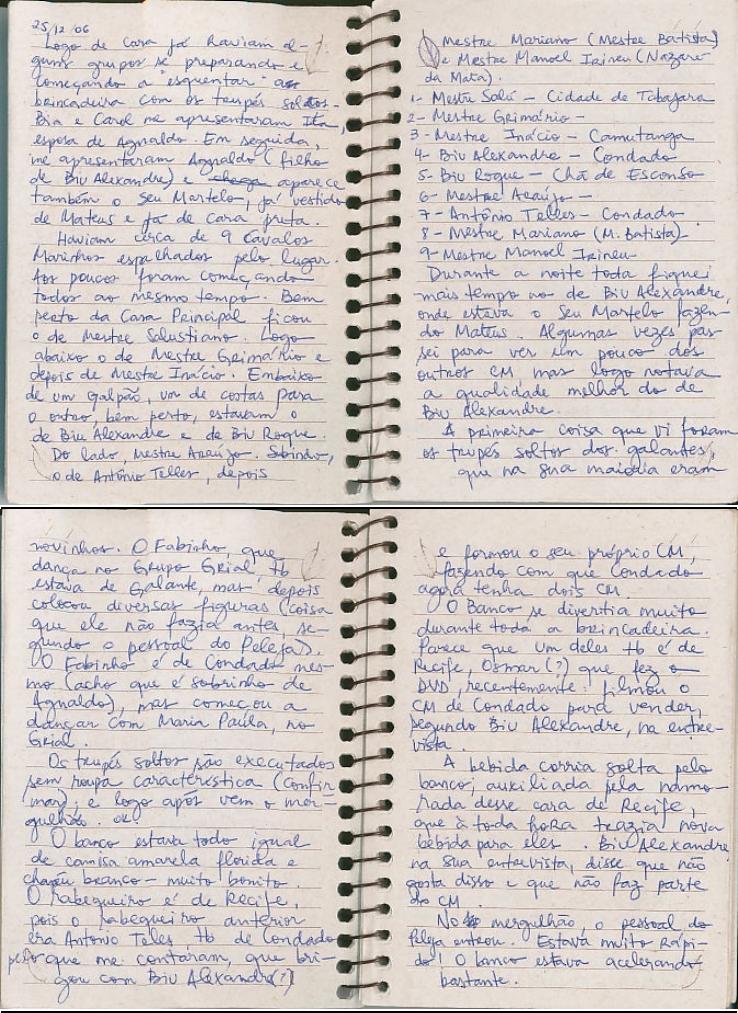 25/12/06
Logo de cara já haviam al-
guns grupos se preparando e
começando a "esquentar" a
brincadeira com os trupés soltos.
Bia e Carol me apresentaram Ita,
esposa de Agnaldo. Em seguida,
me apresentaram Agnaldo (filho
de Biu Alexandre) e chega aparece
também o Seu Martelo, já vestido
de Mateus e já de cara preta.
Haviam cerca de 9 Cavalos
Marinhos espalhados pelo lugar.
Aos poucos foram começando
todos ao mesmo tempo. Bem
perto da Casa Principal ficou
o de Mestre Salustiano. Logo
abaixo o de Mestre Grimário e
depois de Mestre Inácio. Embaixo
de um galpão, um de costas para
o outro, bem perto, estavam o
de Biu Alexandre e de Biu Roque.
Do lado, Mestre Araújo. Subindo,
o de Antônio Telles, depois
Mestre Mariano (Mestre Batista)
e Mestre Manoel Irineu (Nazaré
da Mata).
1- Mestre Salú - Cidade de Tabajara
2- Mestre Grimário -
3- Mestre Inácio - Camutanga
4- Biu Alexandre - Condado
5- Biu Roque - Chã de Esconso
6- Mestre Araújo -
7- Antônio Telles - Condado
8- Mestre Mariano (M. Batista)
9- Mestre Manoel Irineu
Durante a noite toda fiquei
mais tempo no de Biu Alexandre,
onde estava o Seu Martelo fazen-
do Mateus. Algumas vezes pas
sei para ver um pouco dos
outros CM, mas logo notava
a qualidade melhor do de
Biu Alexandre.
A primeira coisa que vi foram
os trupés soltos dos galantes,
que na sua maioria eram
novinhos. O Fabinho, que
dança no Grupo Grial, tb
estava de Galante, mas depois
colocou diversas figuras (coisa
que ele não fazia antes, se-
gundo o pessoal do Peleja).
O Fabinho é de Condado mes-
mo (acho que é sobrinho de
Agnaldo), mas começou a
dançar com Maria Paula, no
Grial.
Os trupés soltos são executados
sem roupa característica (confir
mar), e logo após vem o mer-
gulhão. OK
O banco estava todo igual
de camisa amarela florida e
chapéu branco - muito bonito.
O rabequeiro é de Recife,
pois o rabequeiro anterior
era Antonio Teles, tb de Condado
pelo que me contaram, que bri-
gou com Biu Alexandre(?)
e formou o seu próprio CM,
fazendo com que Condado
agora tenha dois CM.
O Banco se divertia muito
durante toda a brincadeira.
Parece que um deles tb é de
Recife, Osmar (?) que fez o
DVD, recentemente filmou o
CM de Condado para vender,
segundo Biu Alexandre, na entre-
vista.
A bebida corria solta pelo
banco, auxiliada pela namo-
rada desse cara de Recife,
que à toda hora trazia nova
bebida para eles. Biu Alexandre,
na sua entrevista, disse que não
gosta disso e que não faz parte
do CM.
No mergulhão, o pessoal do
Peleja entrou. Estava muito rápi-
do! O banco estava acelerando
bastante.